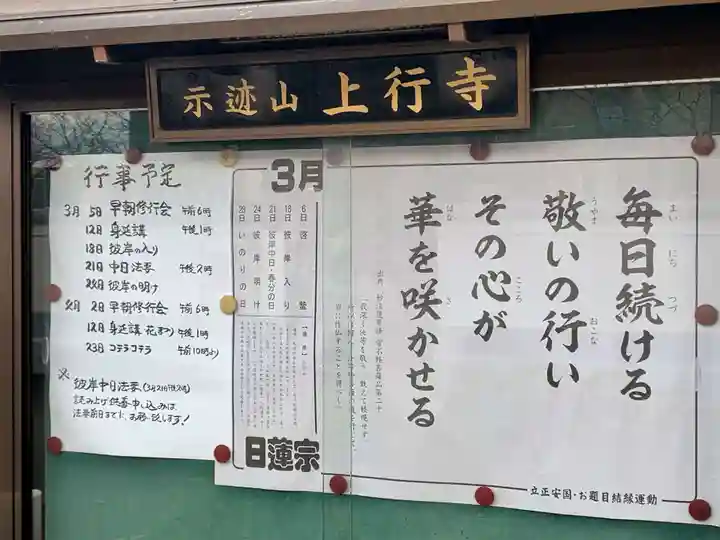 示迹山 上行寺
行事予定
3月 5日 早朝修行会 午前6時
12日 身延講 午後1時
18日 彼岸の入り
21日 中日法要 午後2時
24日 彼岸の明け
4月 2日 早朝修行会 午前6時
12日 身延講 花まつり 午後1時
23日 コテラコテラ 午前10時より
※ 彼岸中日法要(3月21日午後2時)
読み上げ供養申し込みは
法要前日までにお願い致します!
3月
6日 啓蟄
18日 彼岸入り
21日 彼岸中日・春分の日
24日 彼岸明け
28日 いのりの日
日蓮宗
毎日続ける
まいにちつづ
敬いの行い
うやまおこな
その心が
こころ
華を咲かせる
はなさ
出典 妙法蓮華経 常不軽菩薩品第二十
立正安国・お題目結縁運動